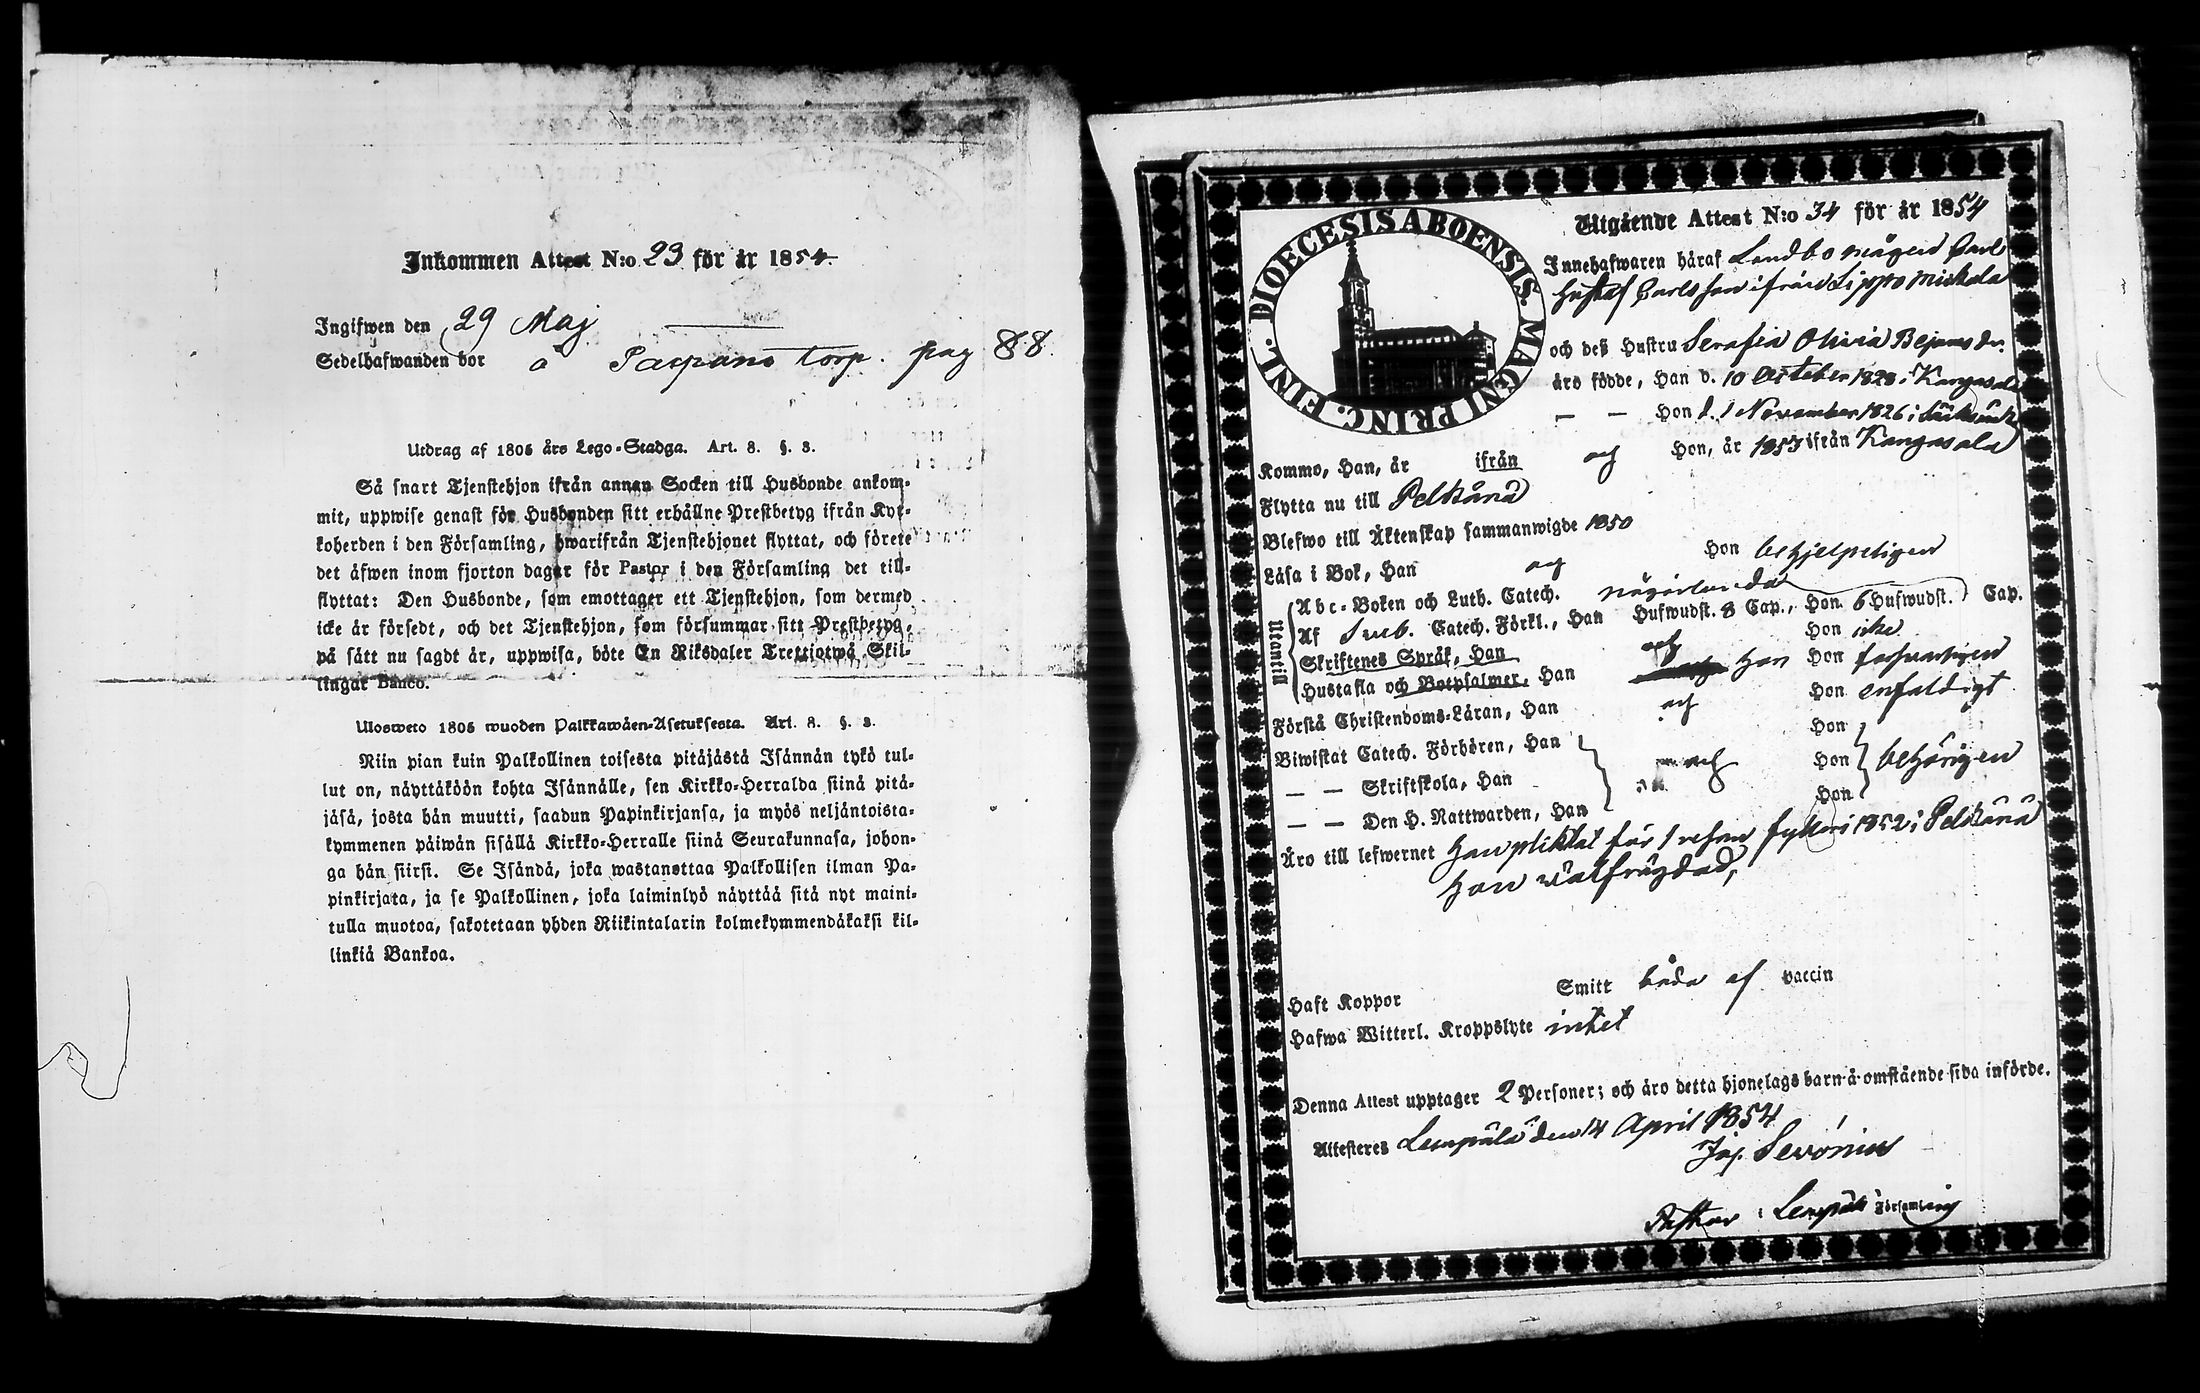 Inkommen Attest N:o 23 för år 1854.
Ingifwen den 29 Maj
Sedelhafwanden bor å Paspans torp. pag 88.
Utdrag af 1805 års Lego-Stadga. Art. 8. §. 3.
Så snart Tjenstehjon ifrån annan Socken till Husbonde ankom-
mit, uppwise genast för Husbonden sitt erhållne Prestbetyg ifrån Kyr-
koherden i den Församling, hwarifrån Tjenstehjonet flyttat, och förete
det äfwen inom fjorton dagar för Pastor i den Församling det till-
flyttat: Den Husbonde, som emottager ett Tjenstehjon, som dermed
icke är försedt, och det Tjenstehjon, som försummar sitt Prestbetyg,
på sätt nu sagdt är, uppwisa, böte En Riksdaler Trettiotwå Skil-
lingar Banco.
Ulosweto 1805 wuoden Palkkawäen-Asetuksesta. Art. 8. §. 3.
Niin pian kuin Palkollinen toisesta pitäjästä Isännän tykö tul-
lut on, näyttäköön kohta Isännälle, sen Kirkko-Herralda siinä pitä-
jäsä, josta hän muutti, saadun Papinkirjansa, ja myös neljäntoista-
kymmenen päiwän sisällä Kirkko-Herralle siinä Seurakunnasa, johon-
ga hän siirsi. Se Isändä, joka wastanottaa Palkollisen ilman Pa-
pinkirjata, ja se Palkollinen, joka laiminlyö näyttää sitä nyt maini-
tulla muotoa, sakotetaan yhden Riikintalarin kolmekymmendäkaksi kil-
linkiä Bankoa.
DIOECESIS ABOENSIS. MAGNI PRINC. FINL.
Utgående Attest N:o 34 för år 1854
Innehafwaren häraf Landbo mågen Carl
Gustaf Carlsson ifrån Lippo Mickala
och deß Hustru Serafia Olivia Bejamsdr.
äro födde, Han d. 10 October 1828 i Kangasala
— — Hon d. 1 November 1826 i
Kommo, Han, år ifrån och Hon, år 1853 ifrån Kangasala
Flytta nu till Pelkänä
Blefwo till Äktenskap sammanwigde 1850
Läsa i Bok, Han och Hon behjelpeligen
Utantill
Abc-Boken och Luth. Catech. någorlunda
Af Sueb. Catech. Förkl., Han Hufwudst. 8 Cap., Hon 6 Hufwudst. Cap.
Skriftenes Språk, Han och Hon icke
Hustafla och Botpsalmer, Han Hon
Förstå Christendoms-Läran, Han och Hon enfaldigt
Biwistat Catech. Förhören, Han Hon
— — Skriftskola, Han och Hon behörigen
— — Den H. Nattwarden, Han Hon
Äro till lefwernet Han pliktat för 1 resan fylleri 1852 i Pelkänä
Hon wälfrägdad,
Haft Koppor Smitt båda af vaccin
Hafwa Witterl. Kroppslyte intet
Denna Attest upptager 2 Personer; och äro detta hjonelags barn å omstående sida införde.
Attesteras Lempälä den 14 April 1854
Jos. Sevónius
Pastor i Lempälä Församling